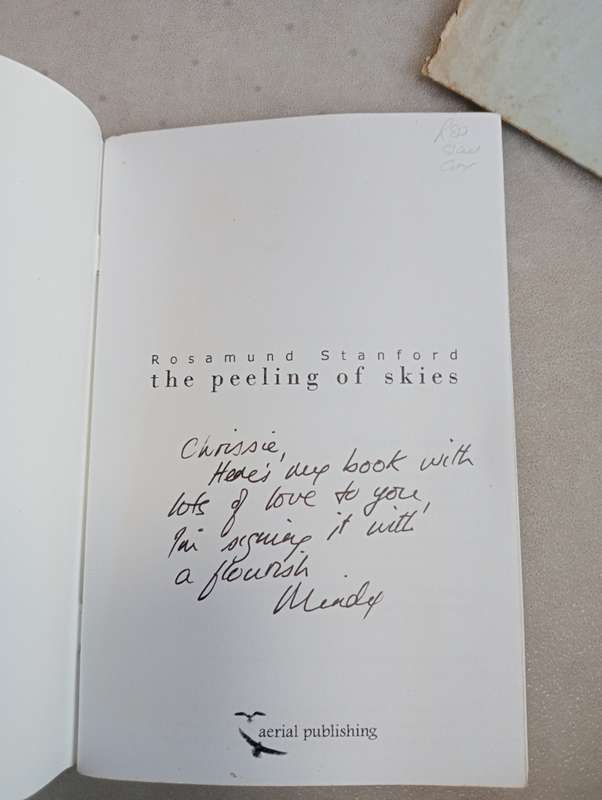 R80
Rosamund Stanford
the peeling of skies
Chrissie,
Here's my book with
lots of love to you,
I'm signing it with
a flourish
Mindy
aerial publishing